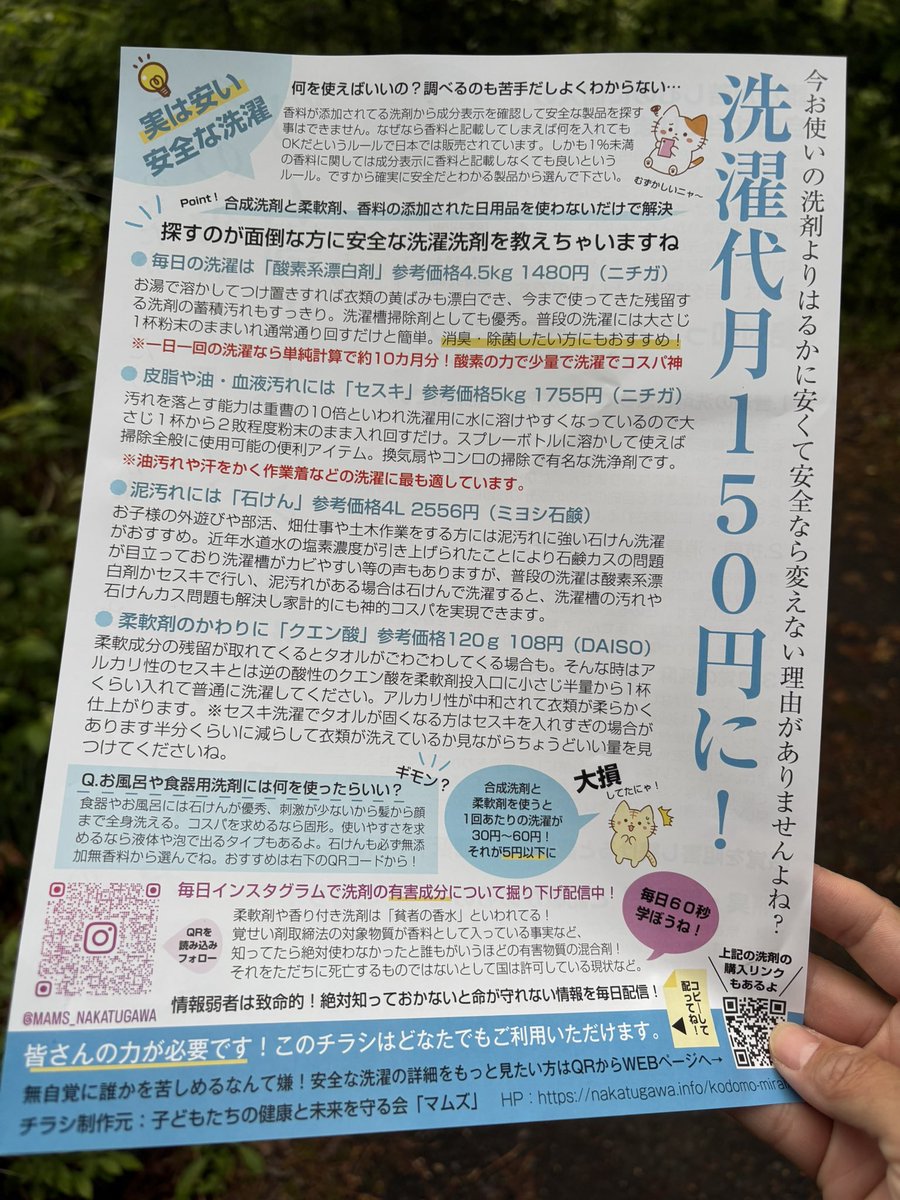 今お使いの洗剤よりはるかに安くて安全なら変えない理由がありませんよね？
洗濯代月150円に！
実は安い
安全な洗濯
何を使えばいいの？調べるのも苦手だしよくわからない…
香料が添加されてる洗剤から成分表示を確認して安全な製品を探す
事はできません。なぜなら香料と記載してしまえば何を入れても
OKだというルールで日本では販売されています。しかも1%未満
の香料に関しては成分表示に香料と記載しなくても良いという
ルール。ですから確実に安全だとわかる製品から選んで下さい。
むずかしいニャ〜
Point！
合成洗剤と柔軟剤、香料の添加された日用品を使わないだけで解決
探すのが面倒な方に安全な洗濯洗剤を教えちゃいますね
●毎日の洗濯は「酸素系漂白剤」参考価格4.5kg 1480円（ニチガ）
お湯で溶かしてつけ置きすれば衣類の黄ばみも漂白でき、今まで使ってきた残留す
る洗剤の蓄積汚れもすっきり。洗濯槽掃除剤としても優秀。普段の洗濯には大さじ
1杯粉末のままいれ通常通り回すだけと簡単。消臭・除菌したい方にもおすすめ！
※一日一回の洗濯なら単純計算で約10カ月分！酸素の力で少量で洗濯でコスパ神
●皮脂や油・血液汚れには「セスキ」参考価格5kg 1755円（ニチガ）
汚れを落とす能力は重曹の10倍といわれ洗濯用に水に溶けやすくなっているので大
さじ1杯から2敗程度粉末のまま入れ回すだけ。スプレーボトルに溶かして使えば
掃除全般に使用可能の便利アイテム。換気扇やコンロの掃除で有名な洗浄剤です。
※油汚れや汗をかく作業着などの洗濯に最も適しています。
●泥汚れには「石けん」参考価格4L 2556円（ミヨシ石鹸）
お子様の外遊びや部活、畑仕事や土木作業をする方には泥汚れに強い石けん洗濯
がおすすめ。近年水道水の塩素濃度が引き上げられたことにより石鹸カスの問題
が目立っており洗濯槽がカビやすい等の声もありますが、普段の洗濯は酸素系漂
白剤かセスキで行い、泥汚れがある場合は石けんで洗濯すると、洗濯槽の汚れや
石けんカス問題も解決し家計的にも神的コスパを実現できます。
●柔軟剤のかわりに「クエン酸」参考価格120g 108円（DAISO）
柔軟成分の残留が取れてくるとタオルがごわごわしてくる場合も。そんな時はア
ルカリ性のセスキとは逆の酸性のクエン酸を柔軟剤投入口に小さじ半量から1杯
くらい入れて普通に洗濯してください。アルカリ性が中和されて衣類が柔らかく
仕上がります。※セスキ洗濯でタオルが固くなる方はセスキを入れすぎの場合が
あります半分くらいに減らして衣類が洗えているか見ながらちょうどいい量を見
つけてくださいね。
ギモン？
Q.お風呂や食器用洗剤には何を使ったらいい？
食器やお風呂には石けんが優秀、刺激が少ないから髪から顔
まで全身洗える。コスパを求めるなら固形。使いやすさを求
めるなら液体や泡で出るタイプもあるよ。石けんも必ず無添
加無香料から選んでね。おすすめは右下のQRコードから！
合成洗剤と
柔軟剤を使うと
1回あたりの洗濯が
30円〜60円！
それが5円以下に
大損
してたにゃ！
毎日インスタグラムで洗剤の有害成分について掘り下げ配信中！
QRを
読み込み
フォロー
柔軟剤や香り付き洗剤は「貧者の香水」といわれてる！
覚せい剤取締法の対象物質が香料として入っている事実など、
知ってたら絶対使わなかったと誰もがいうほどの有害物質の混合剤！
それをただちに死亡するものではないとして国は許可している現状など。
毎日60秒
学ぼうね！
@MAMS_NAKATUGAWA
情報弱者は致命的！絶対知っておかないと命が守れない情報を毎日配信！
コピーして
配ってね！
上記の洗剤の
購入リンク
もあるよ
皆さんの力が必要です！このチラシはどなたでもご利用いただけます。
無自覚に誰かを苦しめるなんて嫌！安全な洗濯の詳細をもっと見たい方はQRからWEBページへ→
チラシ制作元：子どもたちの健康と未来を守る会「マムズ」 HP：https://nakatugawa.info/kodomo-mirai